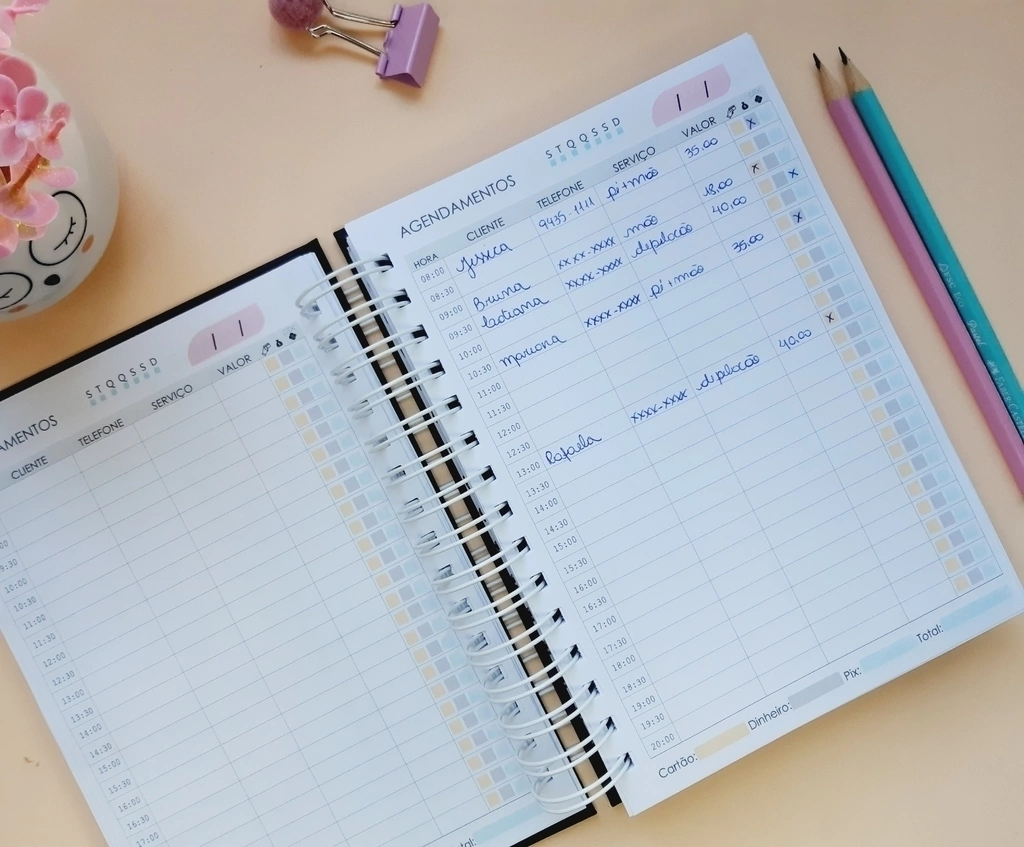 AGENDAMENTOS
S T Q Q S S D
HORA CLIENTE TELEFONE SERVIÇO VALOR
08:00 Jéssica 9435-1111 pé+mão 35,00
08:30
09:00 Bruna xxxx-xxxx mão 18,00
09:30 xxxx-xxxx depilação 40,00
10:00
10:30 Mariana xxxx-xxxx pé+mão 35,00
11:00
11:30
12:00
12:30
13:00 Rafaela xxxx-xxxx depilação 40,00
13:30
14:00
14:30
15:00
15:30
16:00
16:30
17:00
17:30
18:00
18:30
19:00
19:30
20:00
Cartão: Dinheiro: Pix: Total:
AMENTOS
S T Q Q S S D
CLIENTE TELEFONE SERVIÇO VALOR
9:30
10:00
10:30
11:00
11:30
12:00
12:30
13:00
13:30
14:00
14:30
15:00
15:30
16:00
16:30
17:00
tal: